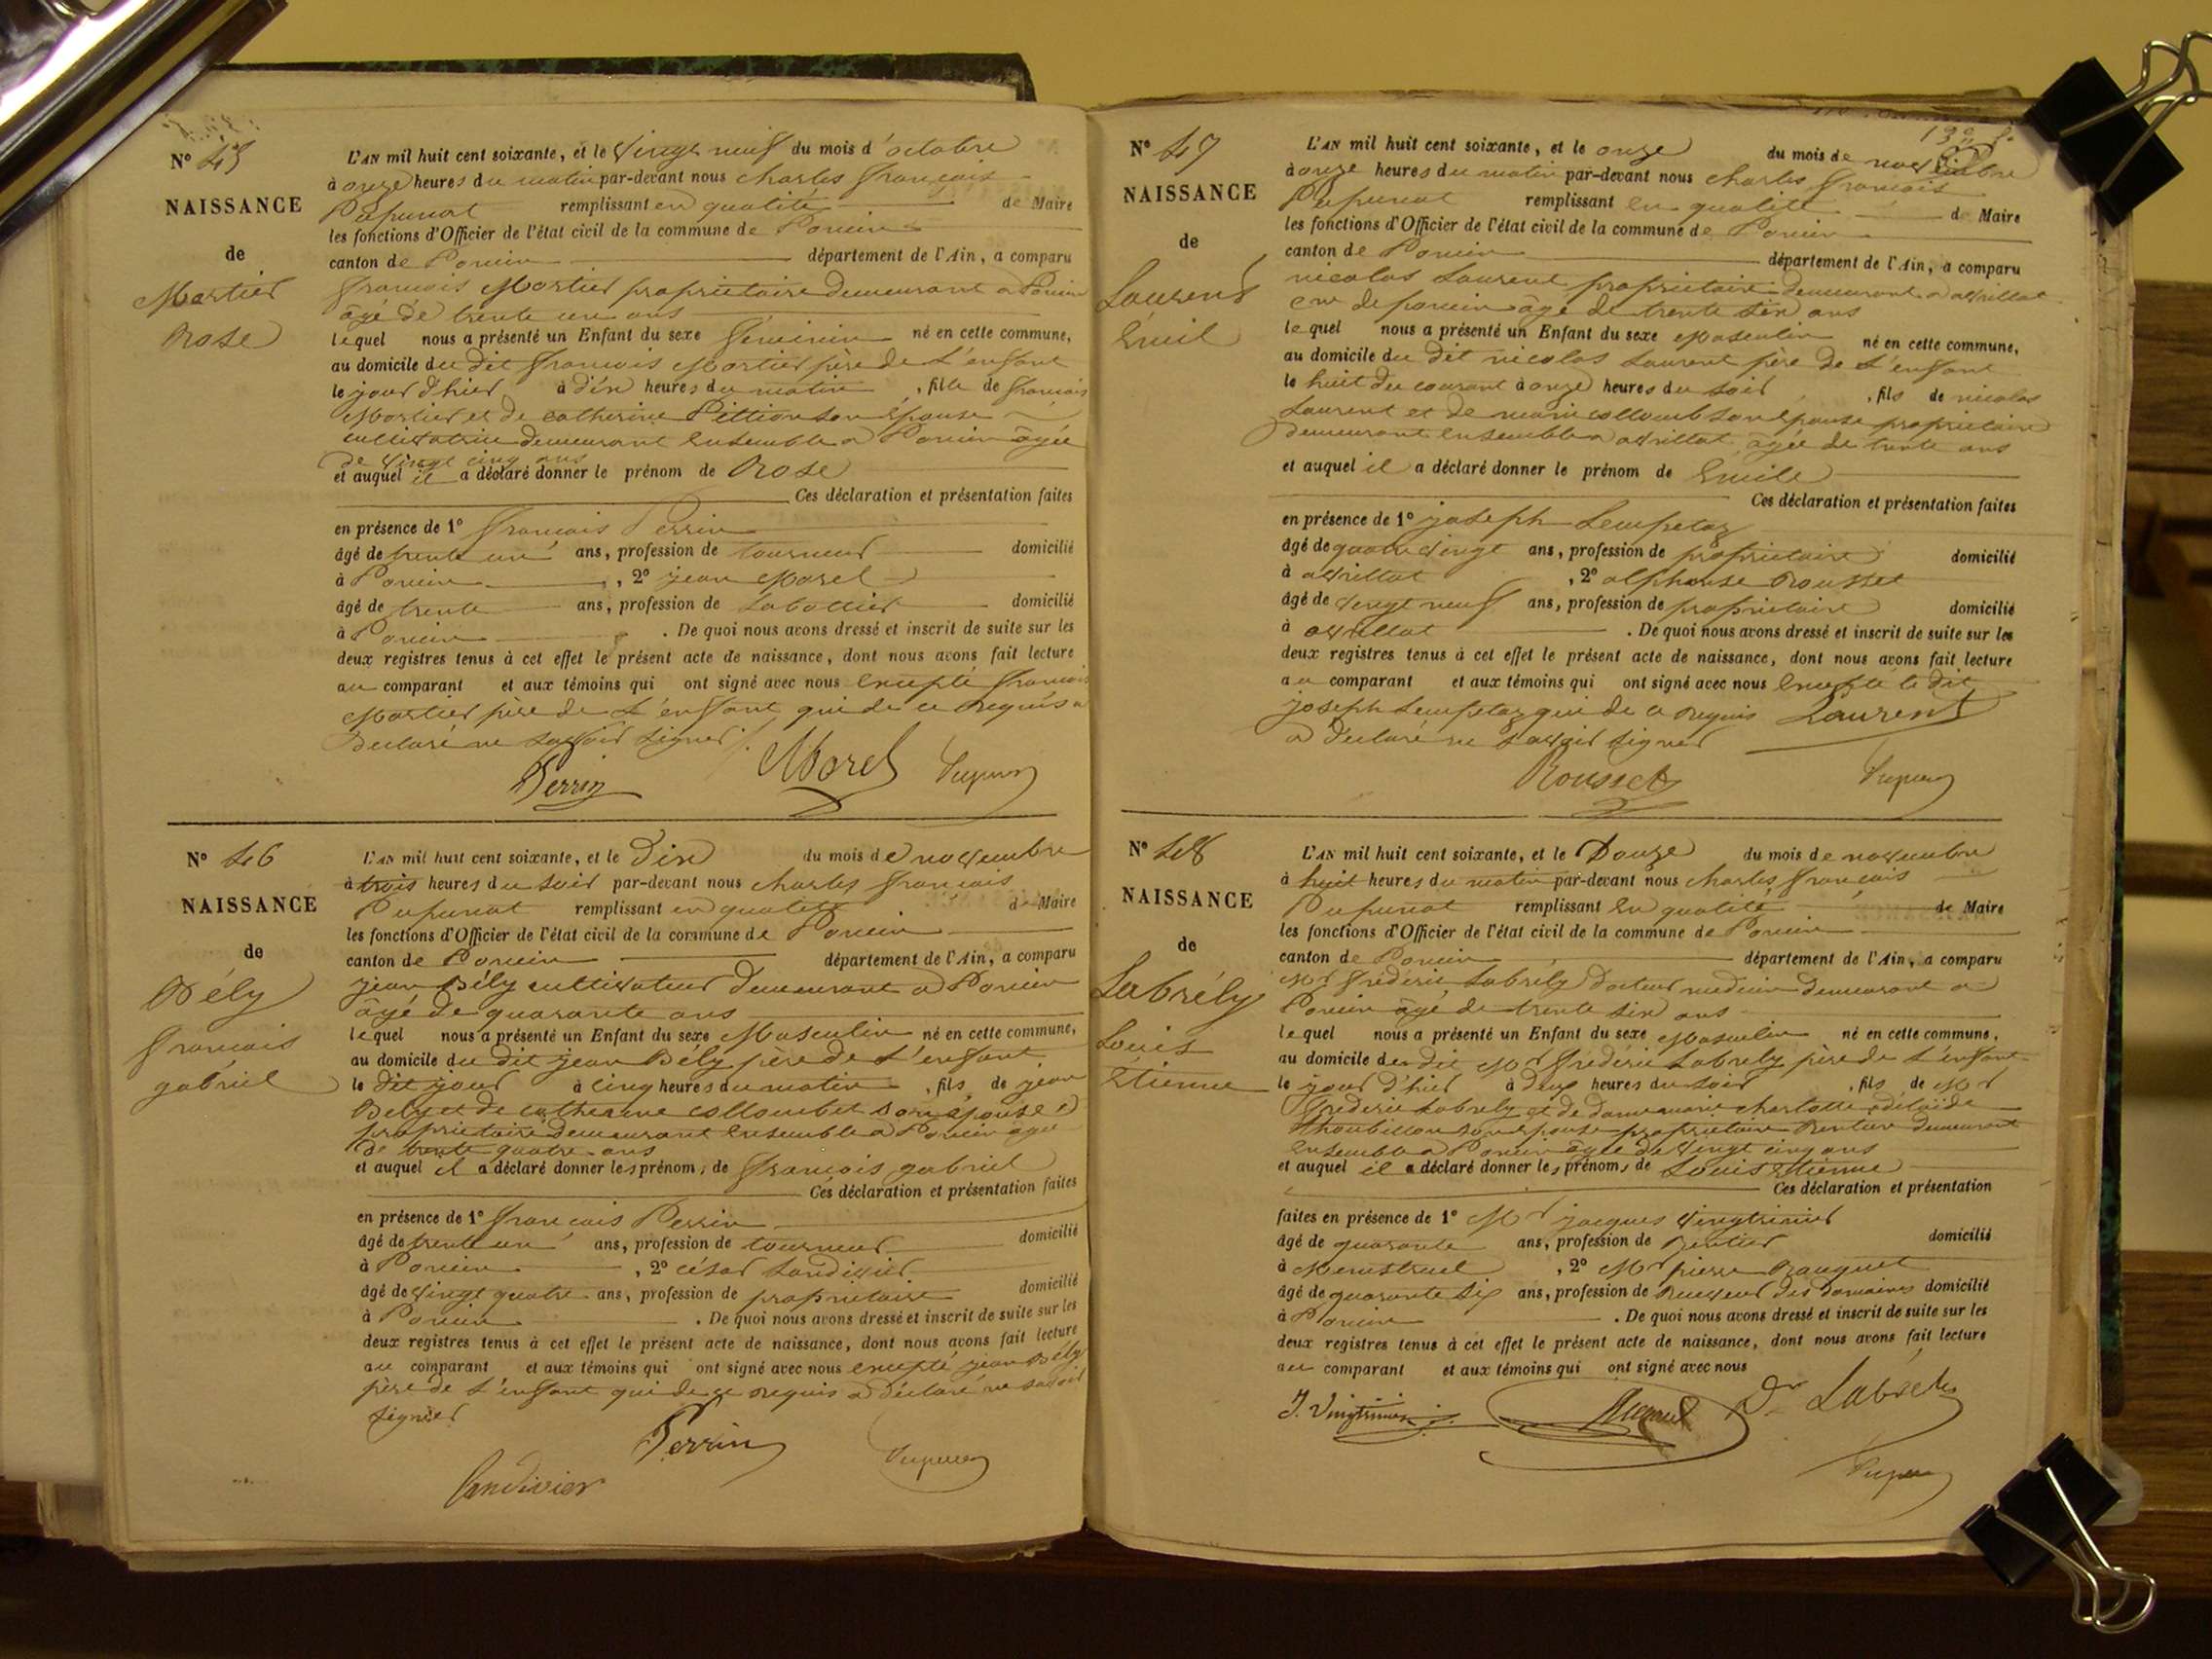 N° 45
NAISSANCE
de
Mortier
Rose
L'AN mil huit cent soixante, et le vingt neuf du mois d'octobre
à onze heures du matin par-devant nous charles françois
remplissant en qualité de Maire
les fonctions d'Officier de l'état civil de la commune de Poncin
canton de Poncin département de l'Ain, a comparu
françois Mortier propriétaire demeurant a Poncin
âgé de trente un ans
lequel nous a présenté un Enfant du sexe féminin né en cette commune,
au domicile du dit françois Mortier père de L'enfant
le jour d'hier à dix heures du matin, fille de françois
Mortier et de catherine Pittion son épouse
cultivatrice demeurant ensemble a Poncin âgée
de vingt cinq ans
et auquel il a déclaré donner le prénom de Rose
Ces déclaration et présentation faites
en présence de 1° françois Perrin
âgé de trente un ans, profession de tourneur domicilié
à Poncin, 2° jean Morel
âgé de trente ans, profession de Sabottier domicilié
à Poncin. De quoi nous avons dressé et inscrit de suite sur les
deux registres tenus à cet effet le présent acte de naissance, dont nous avons fait lecture
au comparant et aux témoins qui ont signé avec nous excepté françois
Mortier père de L'enfant qui de ce requis a
Déclaré ne savoir signer
Perrin Morel
N° 46
NAISSANCE
de
Bély
françois
gabriel
L'AN mil huit cent soixante, et le dix du mois de novembre
à trois heures du soir par-devant nous charles françois
remplissant en qualité de Maire
les fonctions d'Officier de l'état civil de la commune de Poncin
canton de Poncin département de l'Ain, a comparu
jean Bély cultivateur demeurant a Poncin
âgé de quarante ans
lequel nous a présenté un Enfant du sexe Masculin né en cette commune,
au domicile du dit jean Bély père de L'enfant
le dit jour à cinq heures du matin, fils de jean
Bély et de catherine collombet son épouse
propriétaire demeurant ensemble a Poncin âgée
de trente quatre ans
et auquel il a déclaré donner les prénoms de françois gabriel
Ces déclaration et présentation faites
en présence de 1° françois Perrin
âgé de trente un ans, profession de tourneur domicilié
à Poncin, 2° césar Landivier
âgé de vingt quatre ans, profession de propriétaire domicilié
à Poncin. De quoi nous avons dressé et inscrit de suite sur les
deux registres tenus à cet effet le présent acte de naissance, dont nous avons fait lecture
au comparant et aux témoins qui ont signé avec nous excepté jean Bély
père de L'enfant qui de ce requis a déclaré ne savoir
signer
Perrin
Landivier
N° 47
NAISSANCE
de
Laurent
Emil
L'AN mil huit cent soixante, et le onze du mois de novembre
à onze heures du matin par-devant nous charles françois
remplissant en qualité de Maire
les fonctions d'Officier de l'état civil de la commune de Poncin
canton de Poncin département de l'Ain, a comparu
nicolas Laurent propriétaire demeurant a avrillat
cne de poncin âgé de trente six ans
lequel nous a présenté un Enfant du sexe Masculin né en cette commune,
au domicile du dit nicolas Laurent père de L'enfant
le huit du courant à onze heures du soir, fils de nicolas
Laurent et de marie collomb son épouse propriétaire
demeurant ensemble a avrillat âgée de trente ans
et auquel il a déclaré donner le prénom de Emile
Ces déclaration et présentation faites
en présence de 1° joseph Sempetaz
âgé de quatre vingt ans, profession de propriétaire domicilié
à avrillat, 2° alphonse Rousset
âgé de vingt neuf ans, profession de propriétaire domicilié
à avrillat. De quoi nous avons dressé et inscrit de suite sur les
deux registres tenus à cet effet le présent acte de naissance, dont nous avons fait lecture
au comparant et aux témoins qui ont signé avec nous excepté le dit
joseph Sempetaz qui de ce requis Laurent
a déclaré ne savoir signer
Rousset
N° 48
NAISSANCE
de
Labrély
Louis
Etienne
L'AN mil huit cent soixante, et le Douze du mois de novembre
à huit heures du matin par-devant nous charles françois
remplissant en qualité de Maire
les fonctions d'Officier de l'état civil de la commune de Poncin
canton de Poncin département de l'Ain, a comparu
Mr frédéric Labrély docteur médecin demeurant a
Poncin âgé de trente six ans
lequel nous a présenté un Enfant du sexe Masculin né en cette commune,
au domicile du dit Mr frédéric Labrély père de L'enfant
le jour d'hier à deux heures du soir, fils de Mr
frédéric Labrély et de dame marie charlotte adélaïde
son épouse propriétaire Rentière demeurant
ensemble a Poncin âgée de vingt cinq ans
et auquel il a déclaré donner les prénoms de Louis Etienne
Ces déclaration et présentation
faites en présence de 1° Mr jacques Vingtrinier
âgé de quarante ans, profession de Rentier domicilié
à Menestruel, 2° Mr pierre
âgé de quarante six ans, profession de Receveur des Domaines domicilié
à Poncin. De quoi nous avons dressé et inscrit de suite sur les
deux registres tenus à cet effet le présent acte de naissance, dont nous avons fait lecture
au comparant et aux témoins qui ont signé avec nous
J. Vingtrinier Dr Labrély